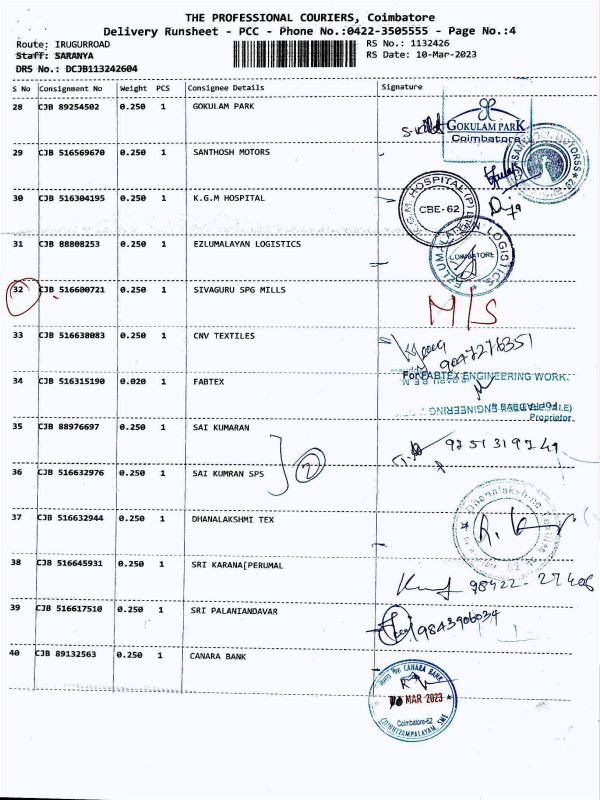 THE PROFESSIONAL COURIERS, Coimbatore
Delivery Runsheet - PCC - Phone No.:0422-3505555 - Page No.:4
Route: IRUGURROAD RS No.: 1132426
Staff: SARANYA RS Date: 10-Mar-2023
DRS No.: DCJB113242604
S No Consignment No Weight PCS Consignee Details Signature
28 CJB 89254502 0.250 1 GOKULAM PARK
GOKULAM PARK
Coimbatore
29 CJB 516569670 0.250 1 SANTHOSH MOTORS
30 CJB 516304195 0.250 1 K.G.M HOSPITAL
K.G.M HOSPITAL (P) LTD
CBE-62
31 CJB 88808253 0.250 1 EZLUMALAYAN LOGISTICS
EZLUMALAYAN LOGISTICS
COIMBATORE
32 CJB 516600721 0.250 1 SIVAGURU SPG MILLS
M/S
33 CJB 516638083 0.250 1 CNV TEXTILES
9047276351
34 CJB 516315190 0.020 1 FABTEX
For FABTEX ENGINEERING WORK
Proprietor
35 CJB 88976697 0.250 1 SAI KUMARAN
9251319249
36 CJB 516632976 0.250 1 SAI KUMRAN SPS
2
37 CJB 516632944 0.250 1 DHANALAKSHMI TEX
Dhanalakshmi
38 CJB 516645931 0.250 1 SRI KARANA[PERUMAL
98422-27406
39 CJB 516617510 0.250 1 SRI PALANIANDAVAR
9843906034
40 CJB 89132563 0.250 1 CANARA BANK
CANARA BANK
10 MAR 2023
Coimbatore-62